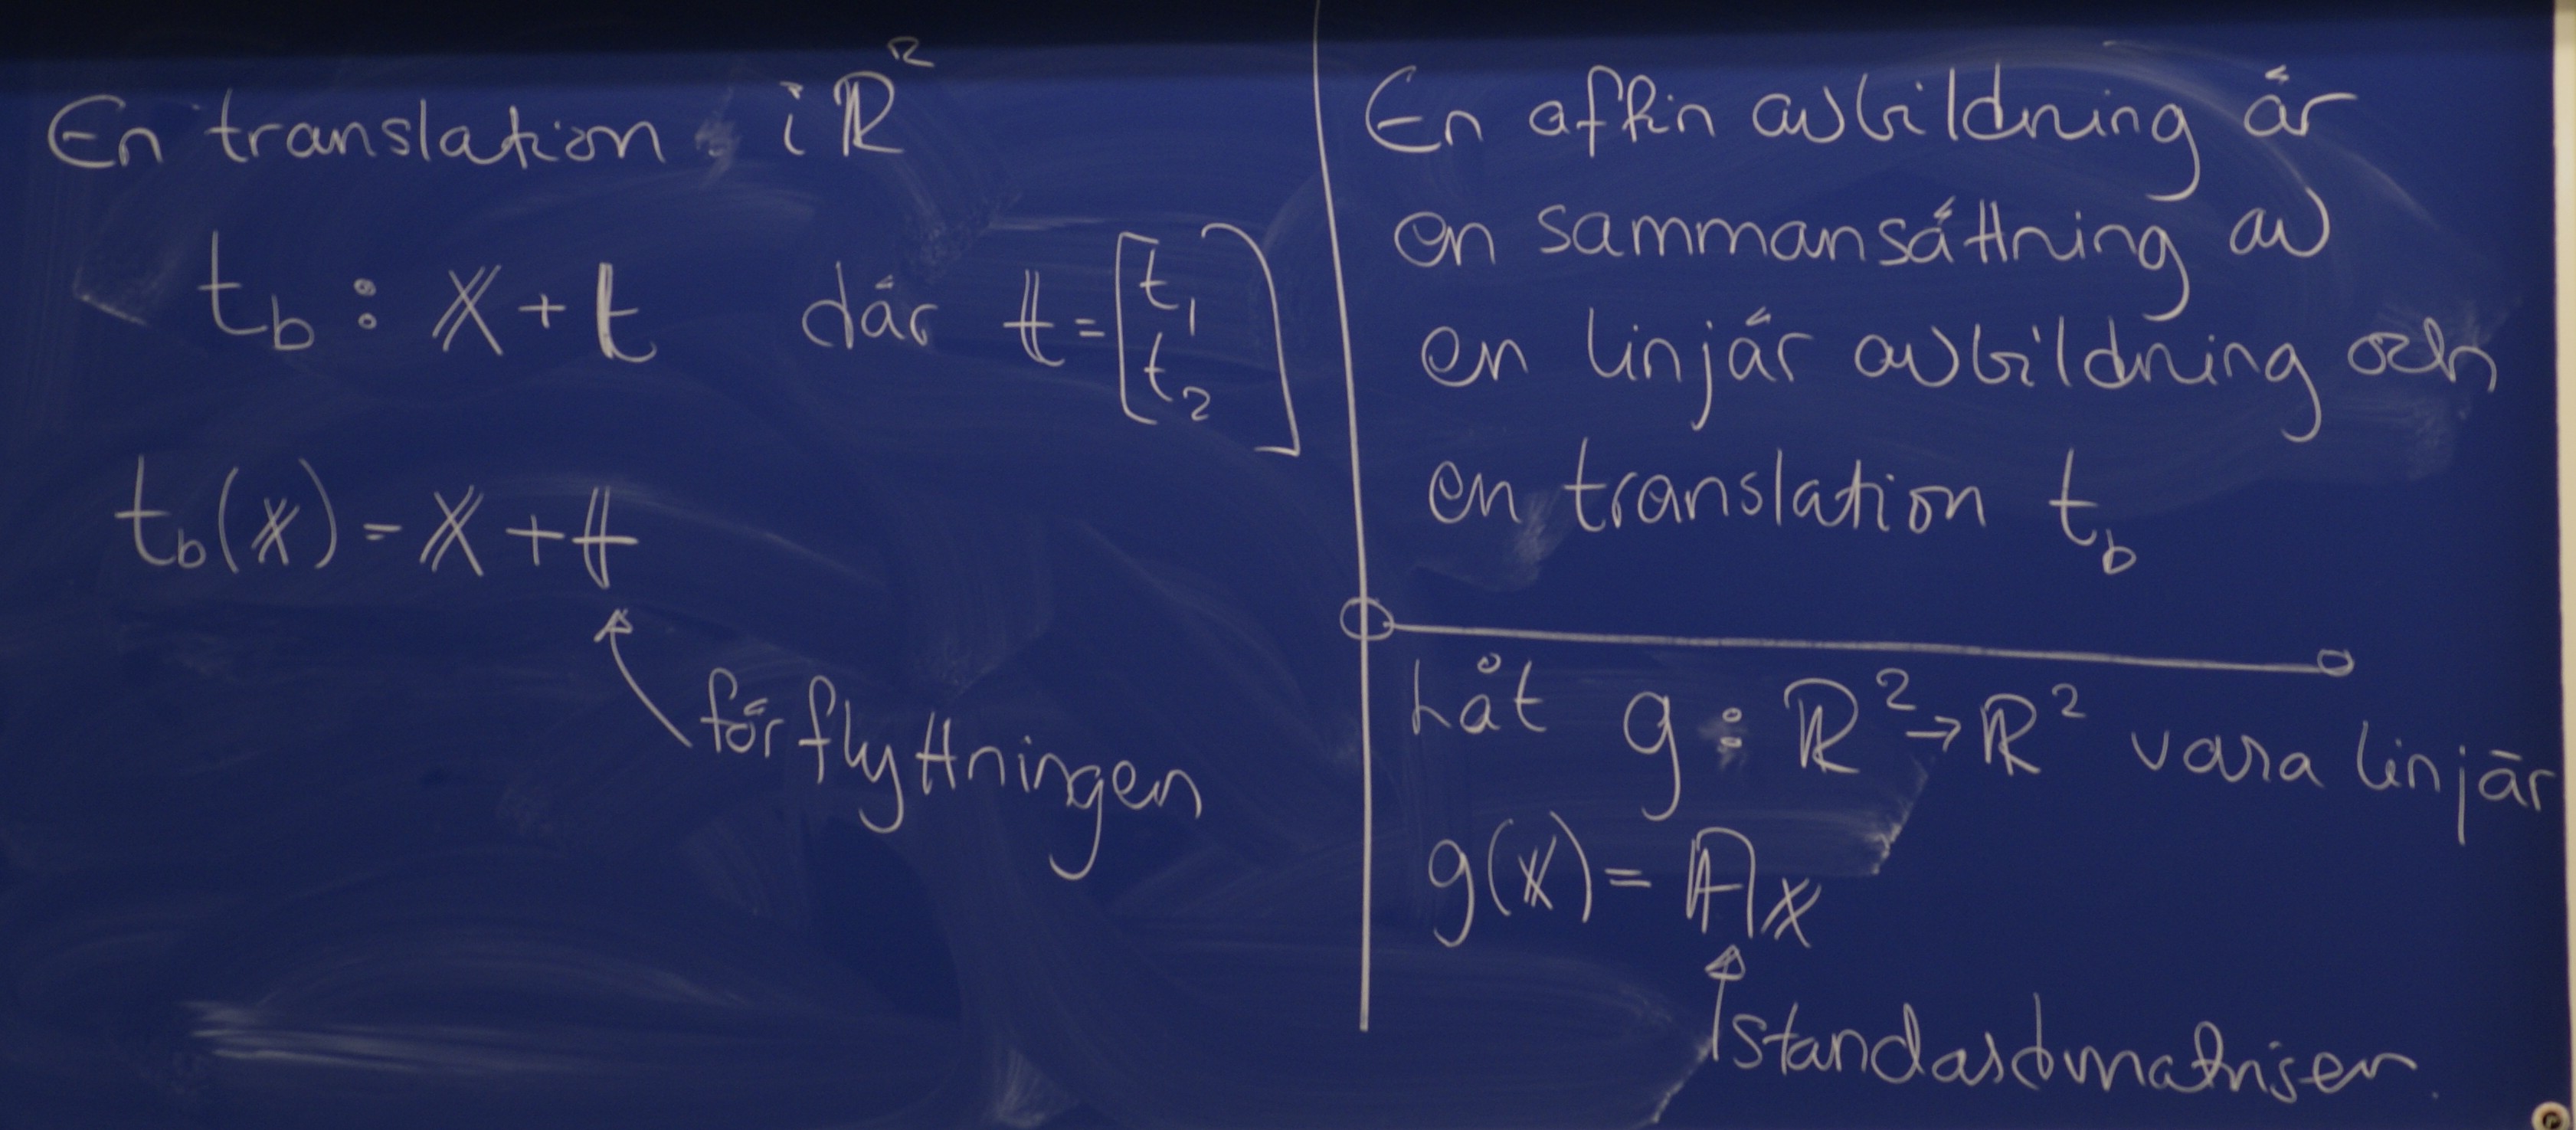 En translation i ℝ²
t_b : 𝕏 + t där 𝕥 = [t₁ t₂]
t_b(𝕩) = 𝕏 + 𝕥
förflyttningen
En affin avbildning är
en sammansättning av
en linjär avbildning och
en translation t_b
Låt g : ℝ² → ℝ² vara linjär
g(𝕩) = 𝔸𝕩
standardmatrisen.